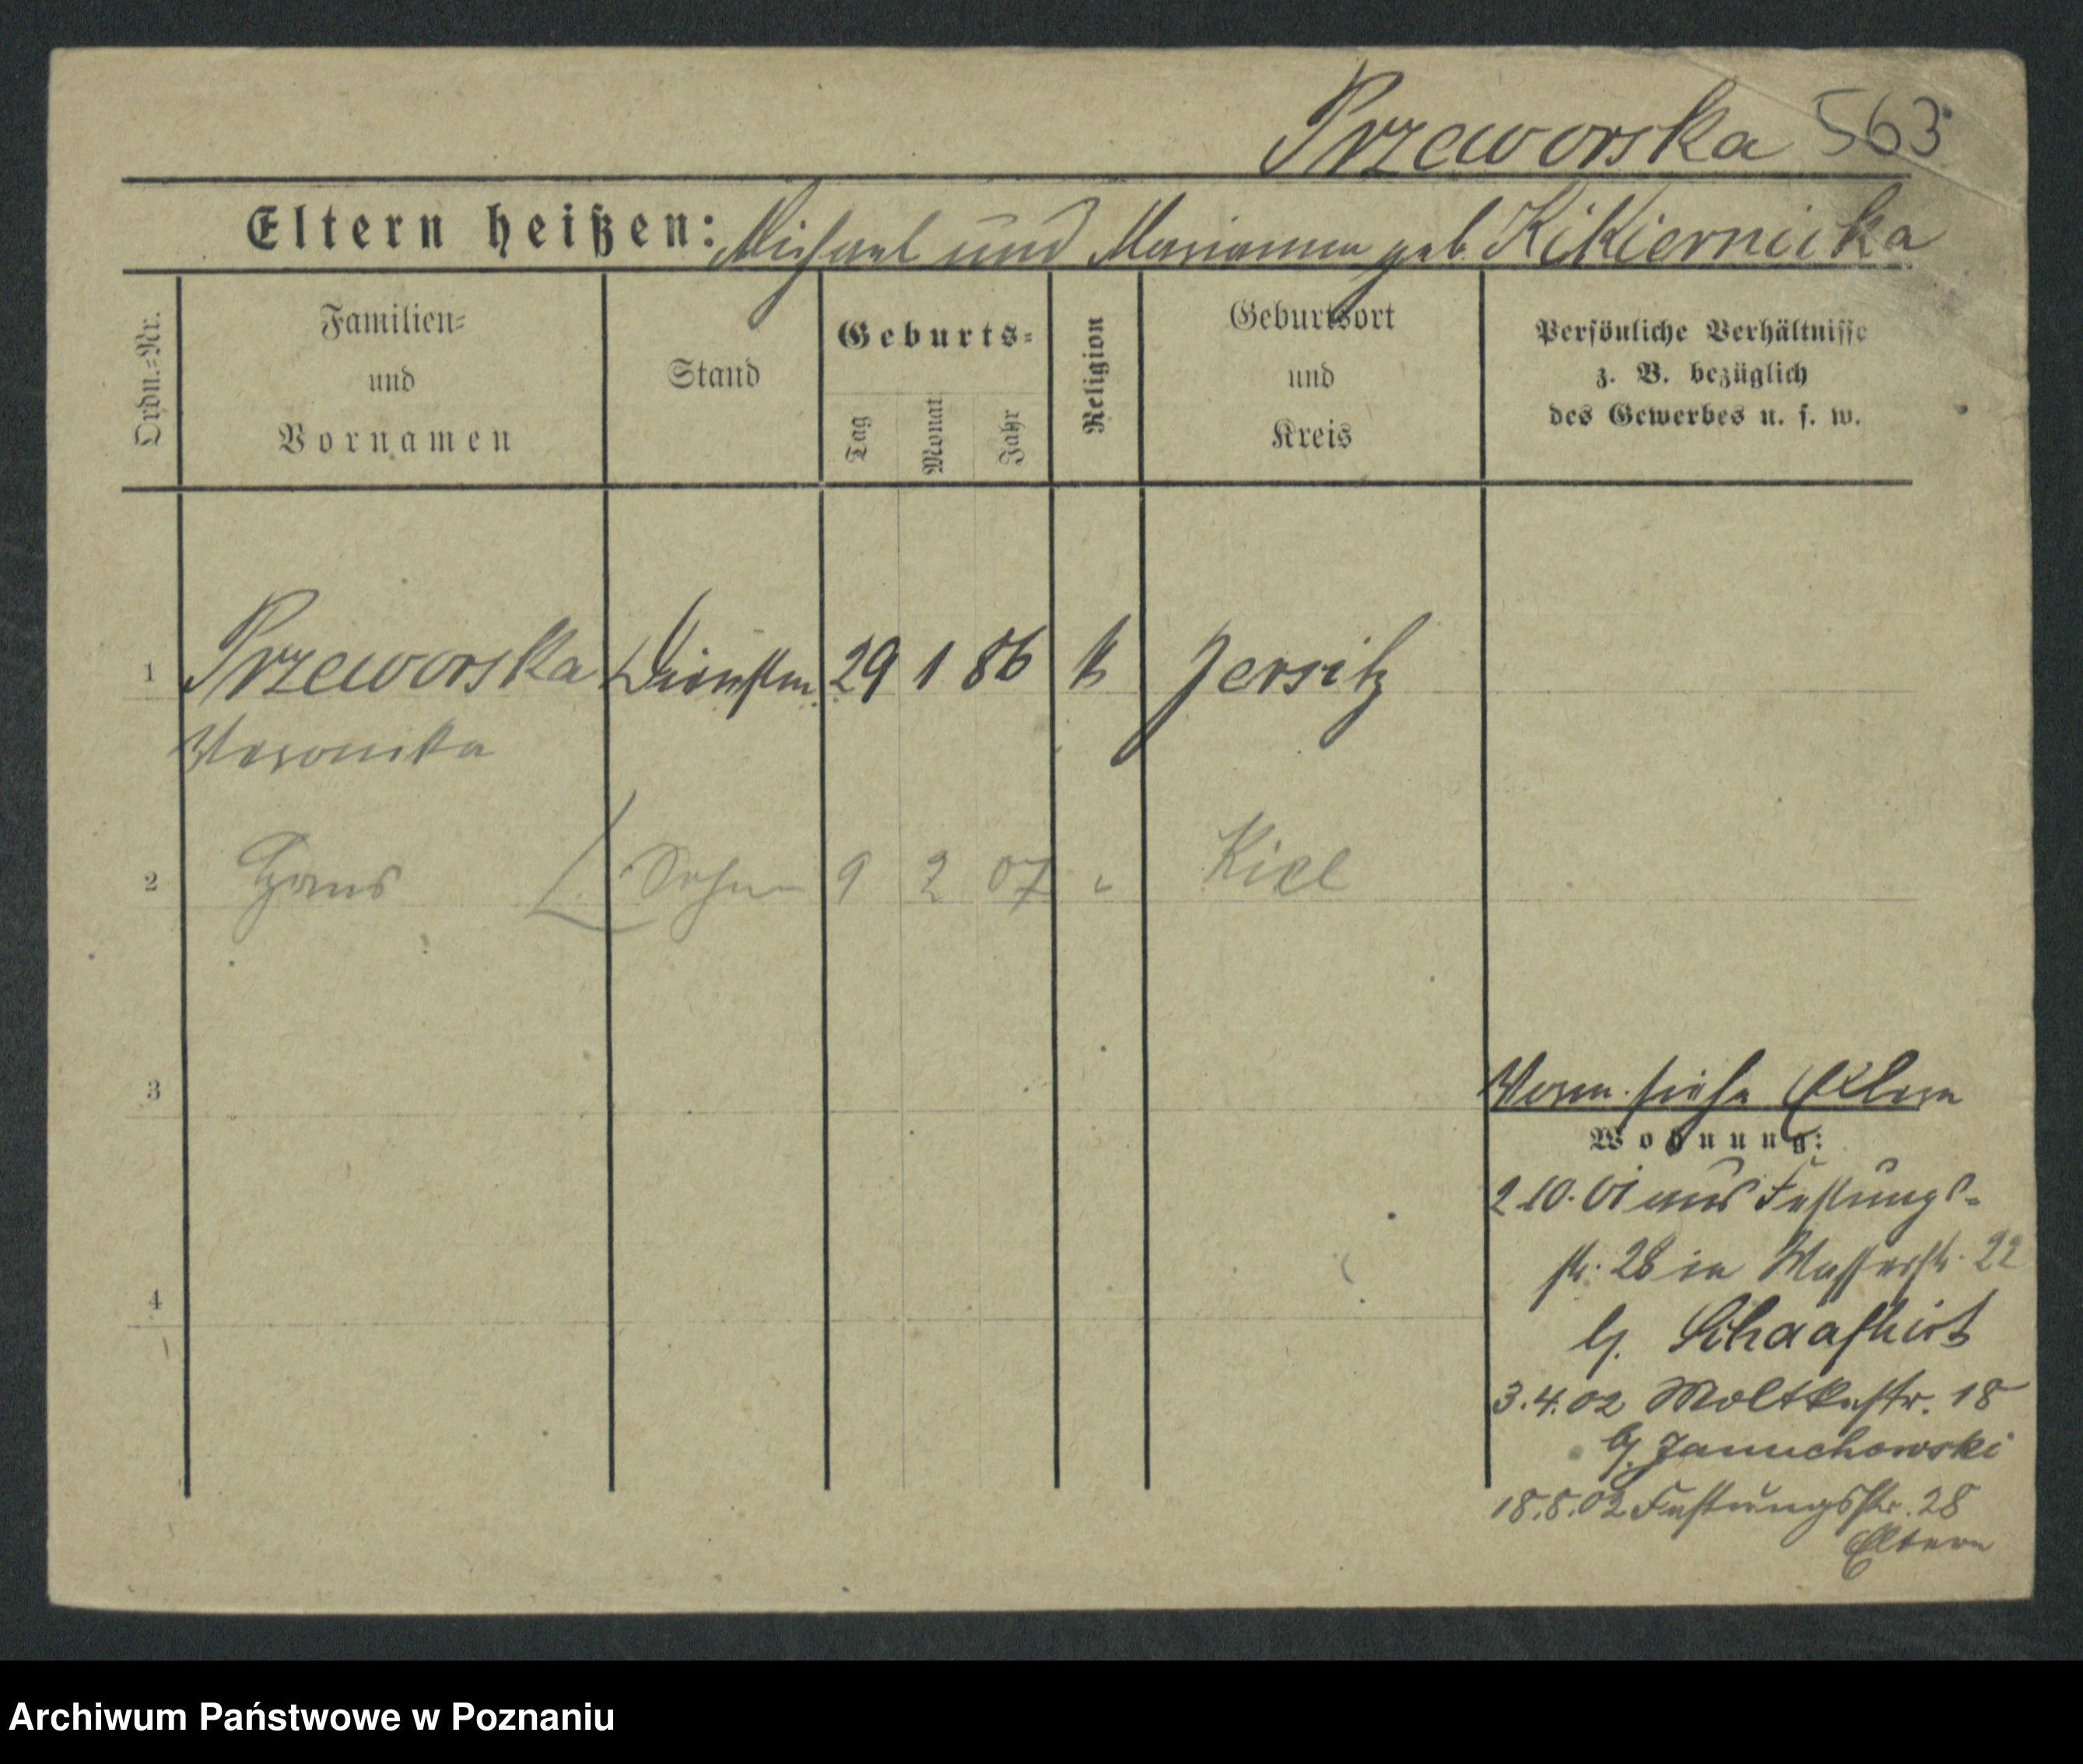 Przeworska 563
Eltern heißen: Michael und Marianna geb. Kikiernicka
Ordn.=Nr.
Familien=
und
Vornamen
Stand
Geburts=
Tag
Monat
Jahr
Religion
Geburtsort
und
Kreis
Persönliche Verhältnisse
z. B. bezüglich
des Gewerbes u. s. w.
1 Przeworska 29 1 86 k Jersitz
Veronika
2 Hans Sohn 9 2 07 Kiel
3
Verm. siehe Eltern
Wohnung:
2 10. 01 aus Festungs-
str. 28 in Wasserstr. 22
b/
4
3.4.02 Moltkestr. 18
b/ Januchowski
18.8.02 Festungsstr. 28
Eltern
Archiwum Państwowe w Poznaniu